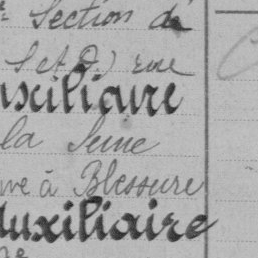 Section de
S et O.) rue
uxiliaire
la Seine
à Blessure
Auxiliaire